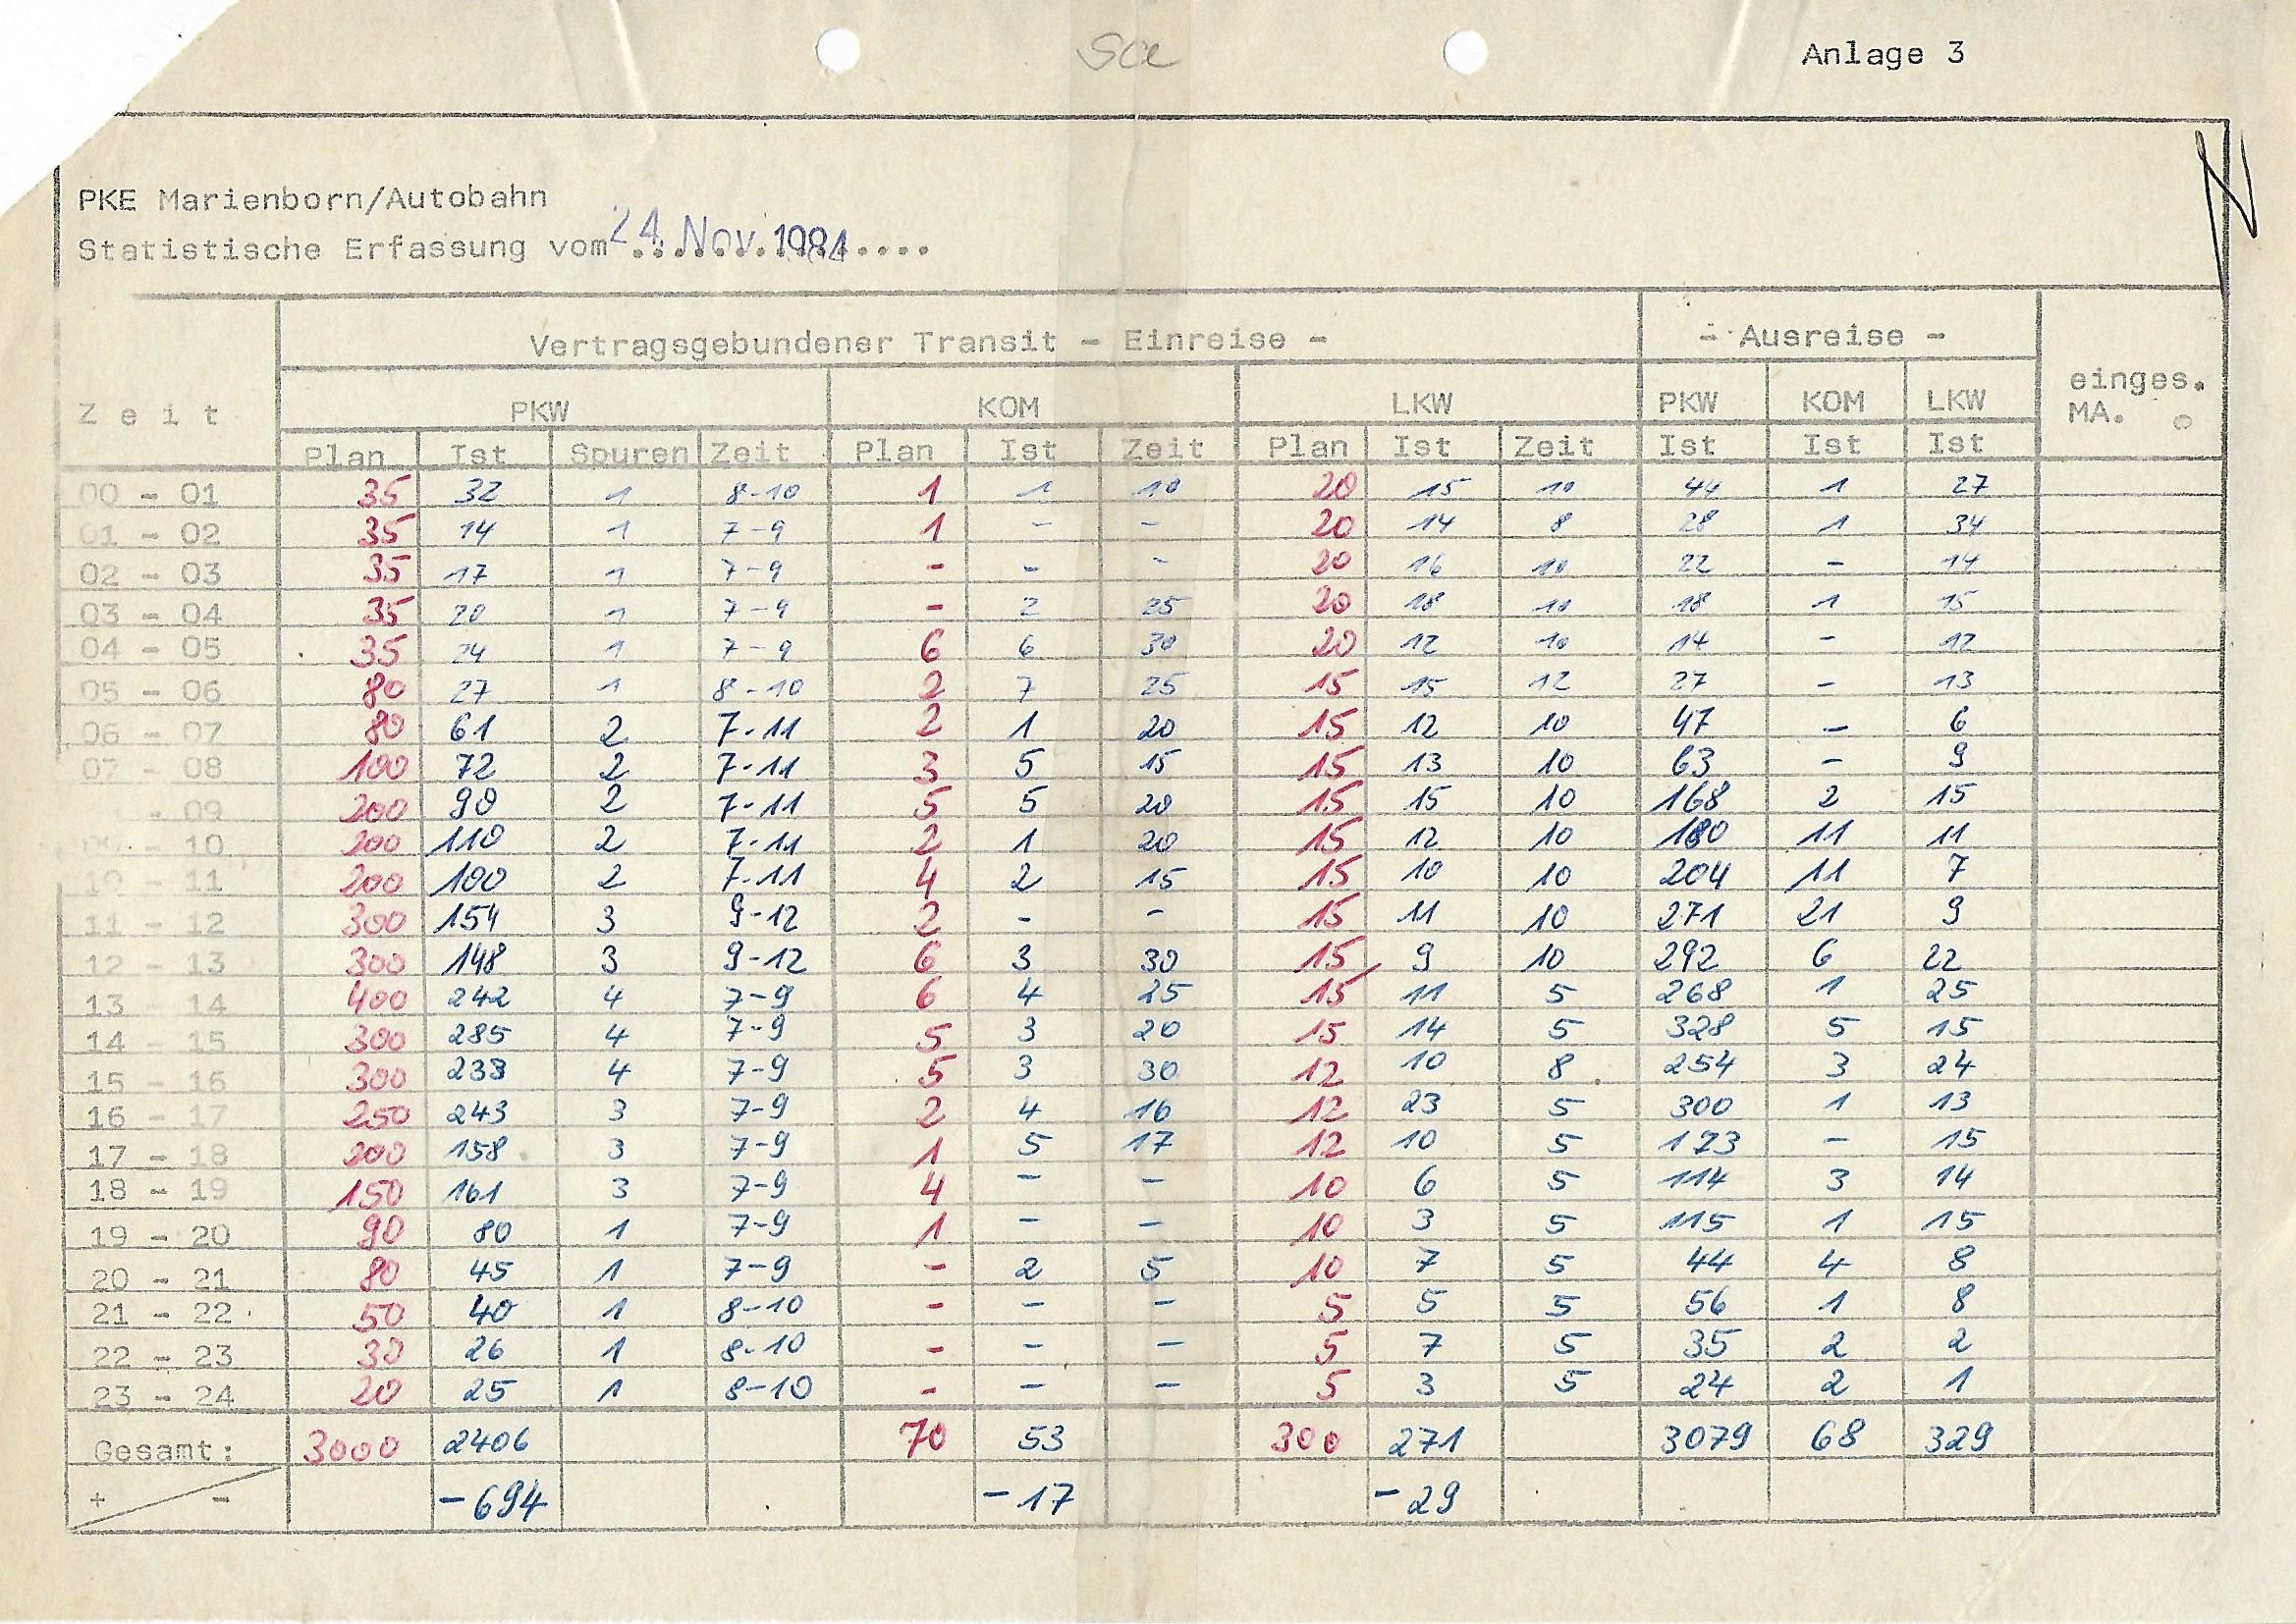 sce
Anlage 3
PKE Marienborn/Autobahn
Statistische Erfassung vom 24. Nov. 1984....
Vertragsgebundener Transit - Einreise - - Ausreise -
Z e i t PKW KOM LKW PKW KOM LKW einges. MA.
Plan Ist Spuren Zeit Plan Ist Zeit Plan Ist Zeit Ist Ist Ist
00 - 01 35 32 1 8-10 1 1 10 20 15 10 44 1 27
01 - 02 35 14 1 7-9 1 - - 20 14 8 28 1 34
02 - 03 35 17 1 7-9 - - - 20 16 10 22 - 14
03 - 04 35 20 1 7-9 - 2 25 20 18 10 18 1 15
04 - 05 35 24 1 7-9 6 6 30 20 12 10 14 - 12
05 - 06 80 27 1 8-10 2 7 25 15 15 12 27 - 13
06 - 07 80 61 2 7-11 2 1 20 15 12 10 47 - 6
07 - 08 100 72 2 7-11 3 5 15 15 13 10 63 - 9
- 09 200 90 2 7-11 5 5 20 15 15 10 168 2 15
09 - 10 200 110 2 7-11 2 1 20 15 12 10 180 11 11
10 - 11 200 100 2 7-11 4 2 15 15 10 10 204 11 7
11 - 12 300 154 3 9-12 2 - - 15 11 10 271 21 9
12 - 13 300 148 3 9-12 6 3 30 15 9 10 292 6 22
13 - 14 400 242 4 7-9 6 4 25 15 11 5 268 1 25
14 - 15 300 285 4 7-9 5 3 20 15 14 5 328 5 15
15 - 16 300 233 4 7-9 5 3 30 12 10 8 254 3 24
16 - 17 250 243 3 7-9 2 4 16 12 23 5 300 1 13
17 - 18 200 158 3 7-9 1 5 17 12 10 5 173 - 15
18 - 19 150 161 3 7-9 4 - - 10 6 5 114 3 14
19 - 20 90 80 1 7-9 1 - - 10 3 5 115 1 15
20 - 21 80 45 1 7-9 - 2 5 10 7 5 44 4 8
21 - 22 50 40 1 8-10 - - - 5 5 5 56 1 8
22 - 23 30 26 1 8-10 - - - 5 7 5 35 2 2
23 - 24 20 25 1 8-10 - - - 5 3 5 24 2 1
Gesamt: 3000 2406 70 53 300 271 3079 68 329
+ - -694 -17 -29